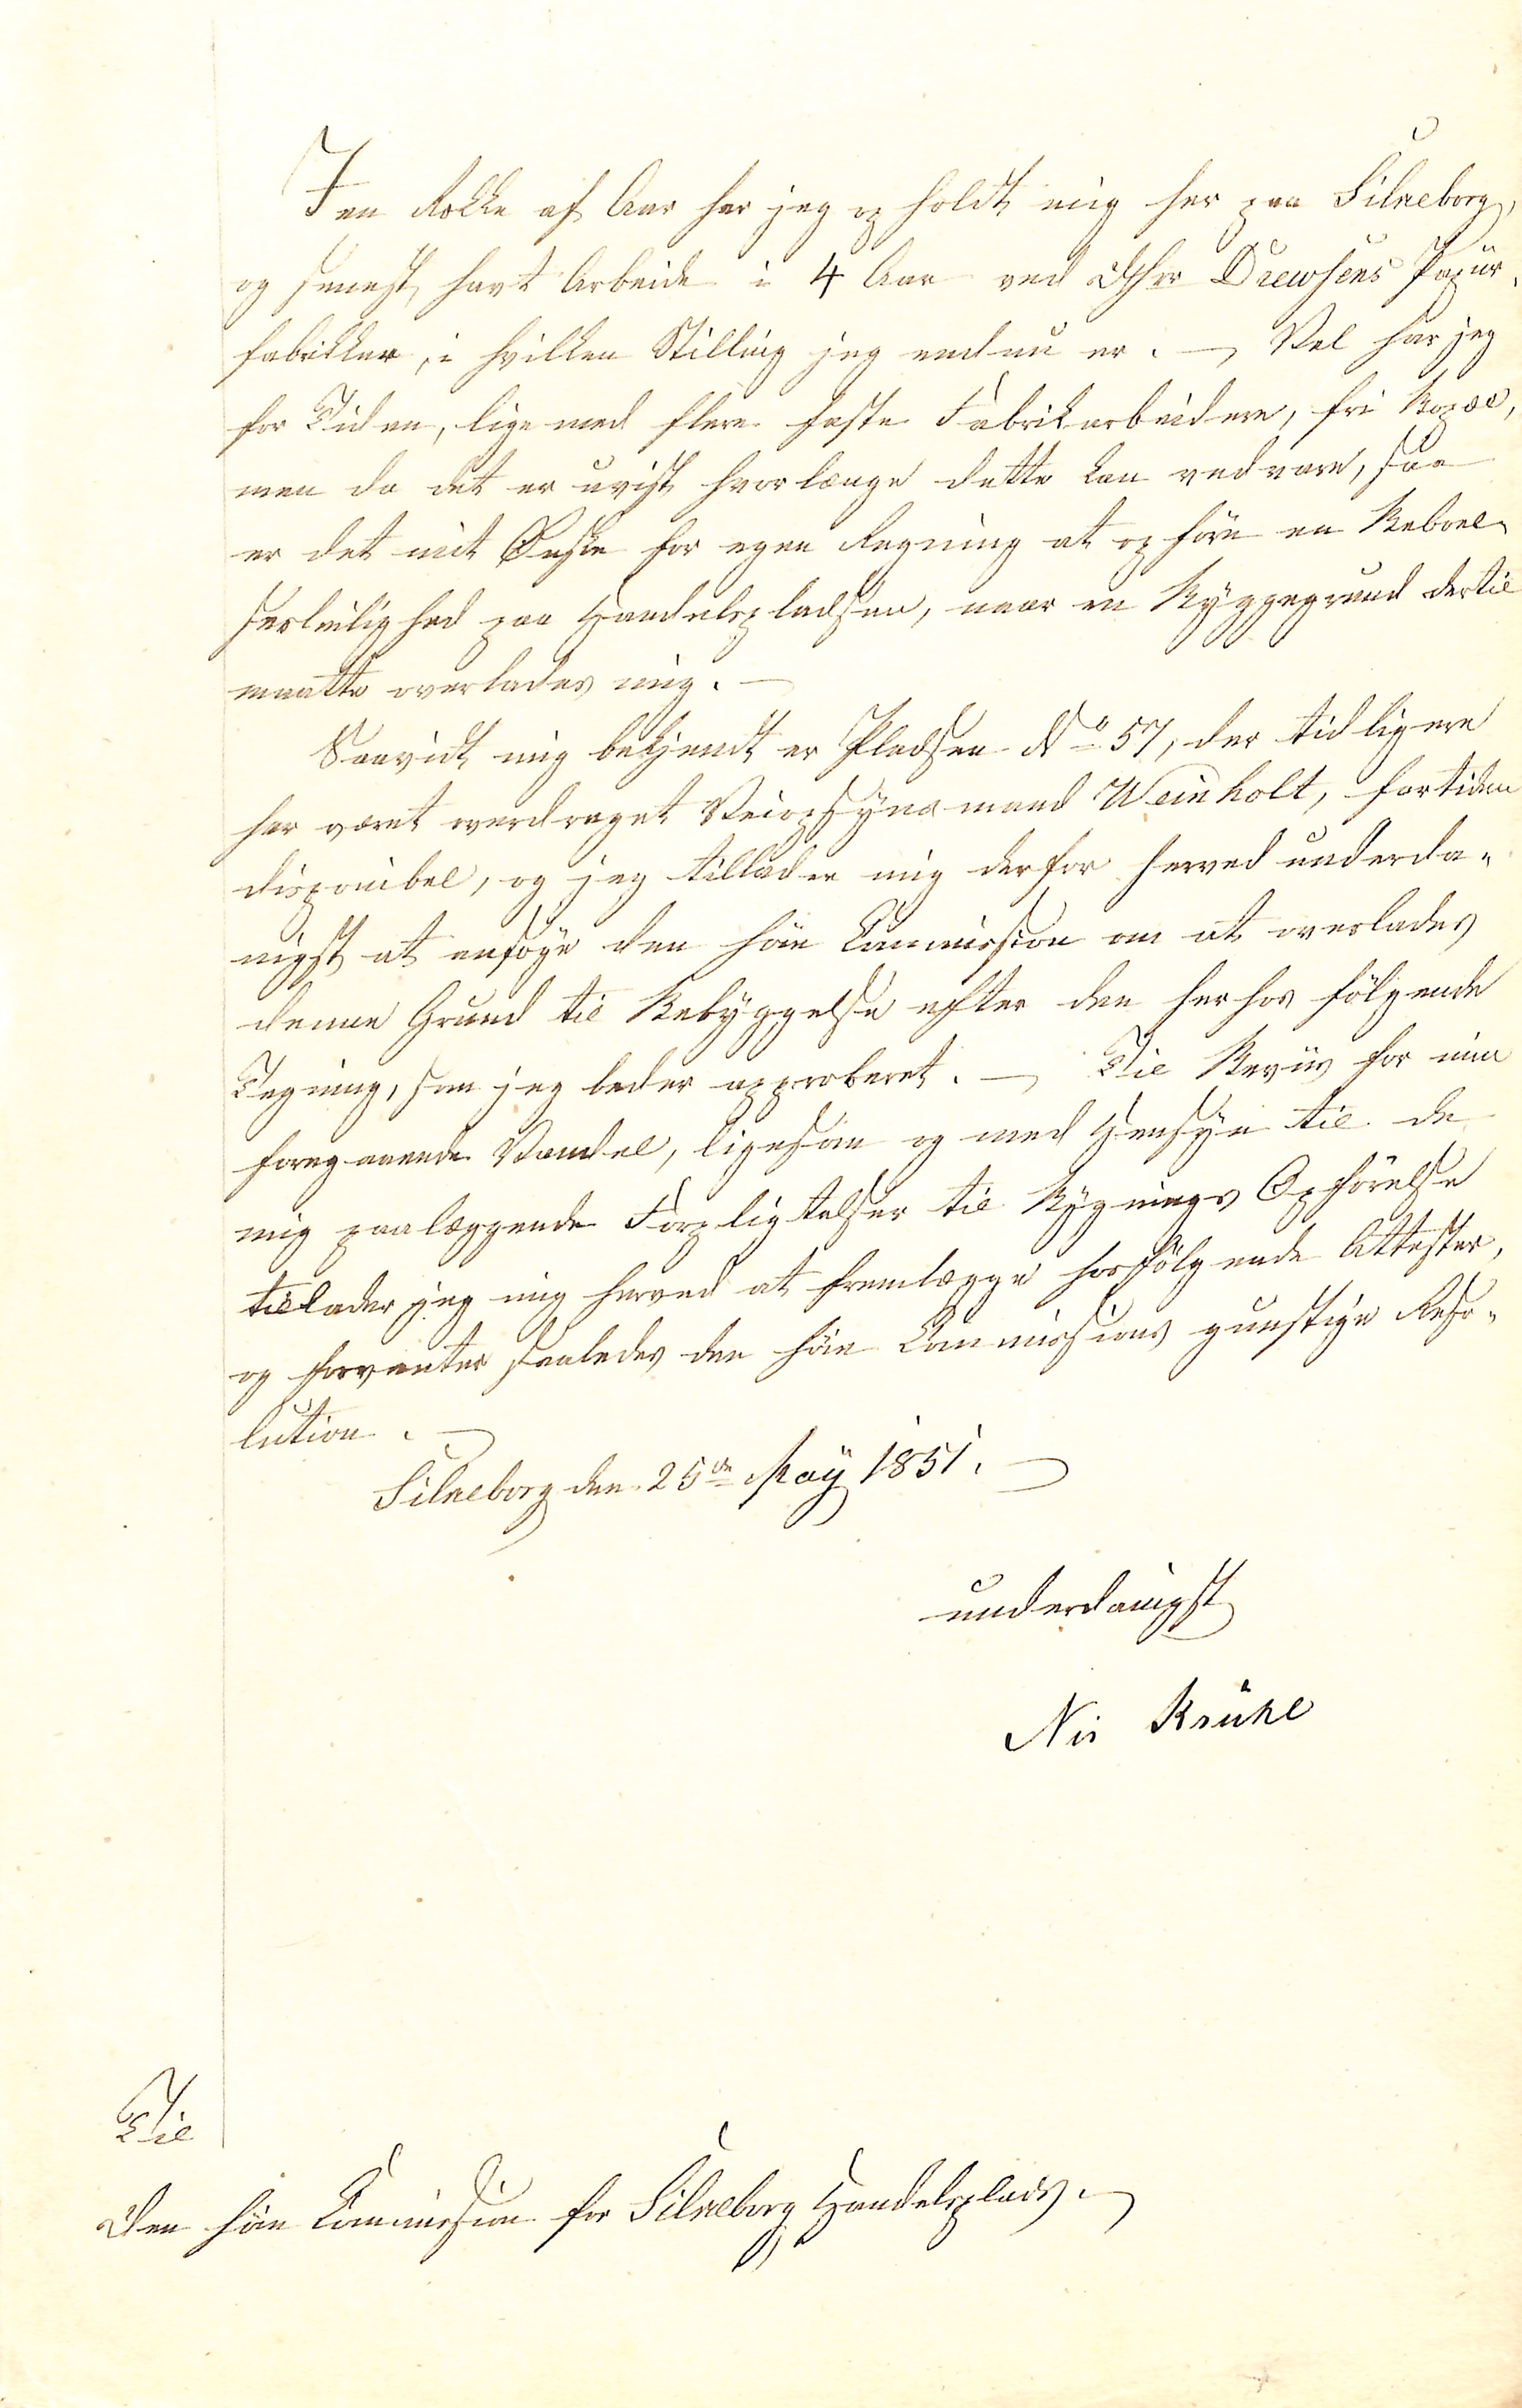 I en Række af Aar har jeg opholdt mig her paa Silkeborg,
og senest havt Arbeide i 4 Aar ved DHrr Drewsens Papiir-
fabrikker, i hvilken Stilling jeg endnu er. — Vel har jeg
for Tiden, ligemed flere faste Fabrikarbeidere, fri Bopæl,
men da det er uvist hvorlænge dette kan vedvare, saa
er det mit Ønske for egen Regning at opföre en Beboel-
sesleilighed paa Handelspladsen, naar en Byggegrund dertil
maatte overlades mig. —
Saavidt mig bekjendt er Pladsen No 57, der tidligere
har været overdraget Veiopsynsmand Weinholt, fortiden
disponibel, og jeg tillader mig derfor herved underda-
nigst at ansöge den höie Commission om at overlades
denne Grund til Bebyggelse efter den herhos fölgende
Tegning, som jeg beder approberet. — Til Beviis for min
foregaaende Vandel, ligesom og med Hensyn til de
mig paalæggende Forpligtelser til Bygnings Opförelse
tillader jeg mig herved at fremlægge hosfölgende Attester,
og forventer saaledes den höie Commissions gunstige Reso-
lution. —
Silkeborg den 25de May 1851. —
underdanigst
Nis Krühl
Til
Den höie Commission for Silkeborg Handelsplads. —